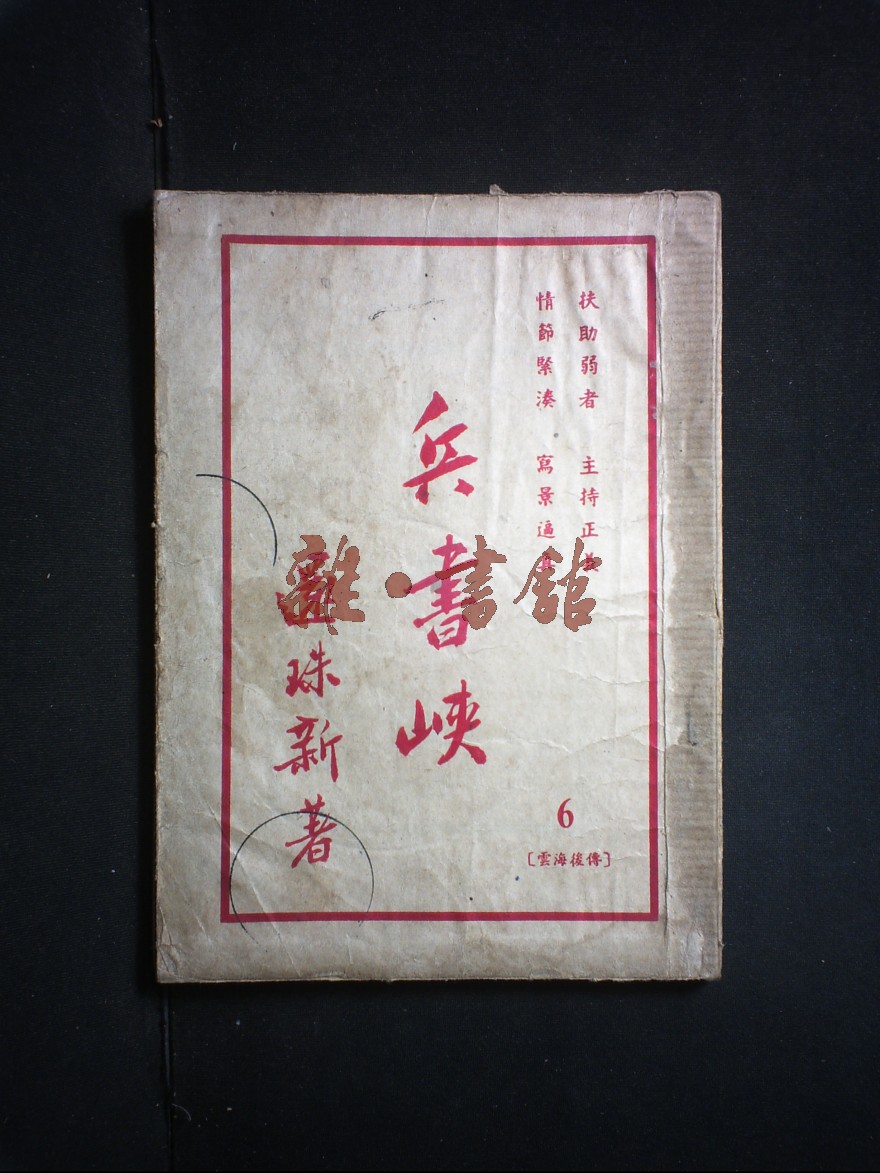 扶助弱者 主持正
情節緊湊 寫景逼
兵書峽
珠新著
6
〔雲海後傳〕
雜·書館